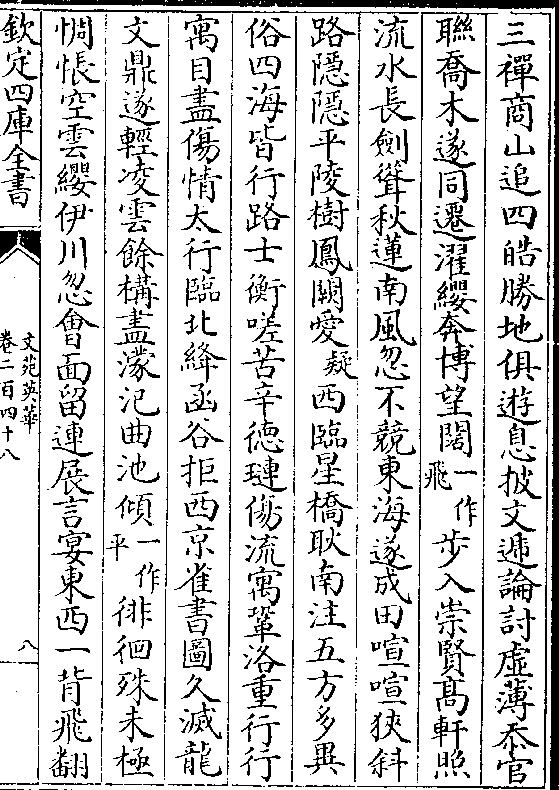 三禪商山追四皓勝地俱遊息披文遞論討虛薄忝官
聯喬木遂同遷濯纓奔博望闊一作飛步入崇賢髙軒照
流水長劍聳秋蓮南風忽不競東海遂成田喧喧狹斜
路隱隱平陵樹鳳闕愛疑西臨星橋耿南注五方多異
俗四海皆行路士衡嗟苦辛德璉傷流寓鞏洛重行行
寓目盡傷情太行臨北絳函谷拒西京雀書圖久滅龍
文鼎遂輕凌雲餘構盡濛汜曲池傾一作平徘徊殊未極
惆悵空雲纓伊川忽會面留連展言宴東西一背飛翻
欽定四庫全書
文苑英華
卷二百四十八
八